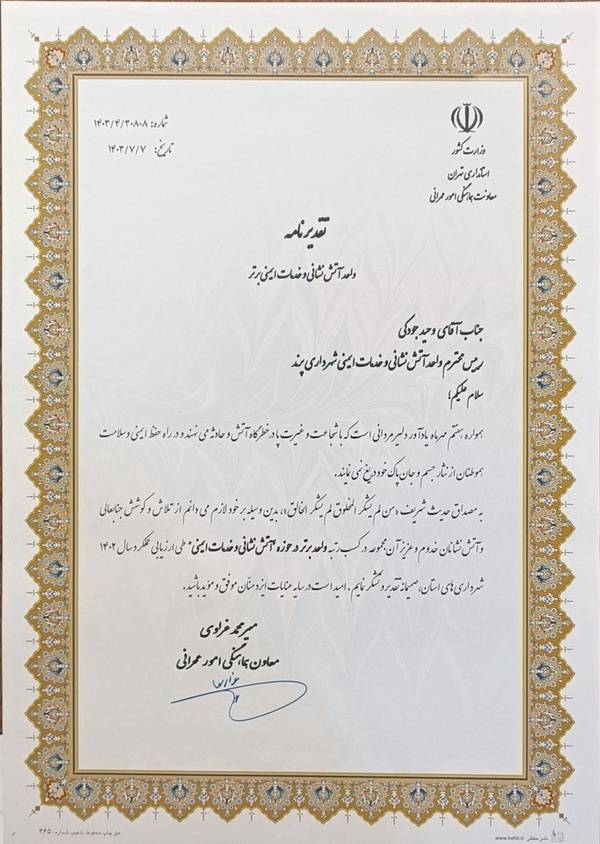 وزارت کشور
استانداری تهران
معاونت هماهنگی امور عمرانی
شماره: ۱۴۰۳/۴/۳۰۸۰۸
تاریخ: ۱۴۰۳/۷/۷
تقدیرنامه
واحد آتش نشانی و خدمات ایمنی برتر
جناب آقای وحید جودکی
رییس محترم واحد آتش نشانی و خدمات ایمنی شهرداری پرند
سلام علیکم؛
همواره هفتم مهرماه یادآور دلیرمردانی است که با شجاعت و غیرت پا در خطرگاه آتش و حادثه می نهند و در راه حفظ ایمنی و سلامت
هموطنان از نثار جسم و جان پاک خود دریغ نمی نمایند.
به مصداق حدیث شریف «من لم یشکر المخلوق لم یشکر الخالق»، بدین وسیله بر خود لازم می دانم از تلاش و کوشش جنابعالی
و آتش نشانان خدوم و عزیز آن مجموعه در کسب رتبه واحد برتر در حوزه "آتش نشانی و خدمات ایمنی" طی ارزیابی عملکرد سال ۱۴۰۲
شهرداری های استان، صمیمانه تقدیر و تشکر نمایم. امید است در سایه عنایات ایزد منان موفق و مؤید باشید.
معاون هماهنگی امور عمرانی
حق چاپ محفوظ تذهیب شماره: ۴۶۵
www.hefzi.ir